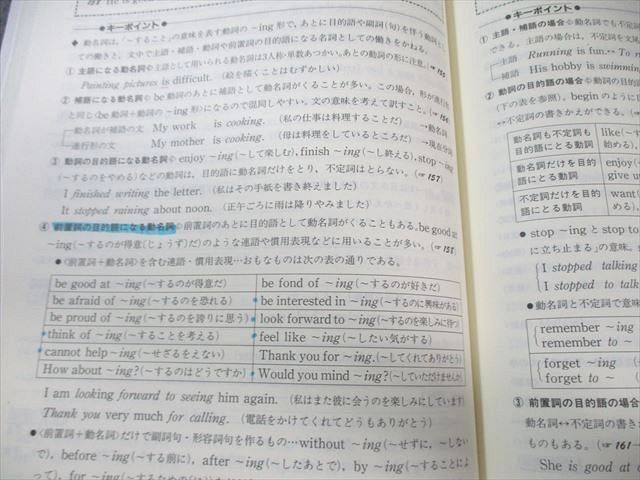 キーポイント
◆ 動名詞は,「～すること」の意味を表す動詞の ～ing 形で,あとに目的語や副詞(句)を伴う動詞としての働きと, 文中で主語・補語・動詞や前置詞の目的語になる名詞としての働きをかねる。
① 主語になる動名詞 主語として用いられる動名詞は3人称・単数あつかい。あとの動詞の形に注意。
Painting pictures is difficult. (絵を描くことはむずかしい)
② 補語になる動名詞 be動詞のあとに補語として動名詞がくることが多い。この場合, 形が進行形
と同じ〈be動詞＋動詞の ～ing 形〉になるので混同しやすい。文の意味を考えて訳すこと。(☞ 156)
動名詞が補語の文 My work is cooking. (私の仕事は料理することだ) →動名詞
進行形の文 My mother is cooking. (母は料理をしているところだ) →現在分詞
③ 動詞の目的語になる動名詞 enjoy ～ing (～して楽しむ), finish ～ing (～し終える), stop ～ing
(～するのをやめる) などの動詞は, 目的語に動名詞だけをとり, 不定詞はとらない。(☞ 157)
I finished writing the letter. (私はその手紙を書き終えました)
It stopped raining about noon. (正午ごろに雨は降りやみました)
④ 前置詞の目的語になる動名詞 前置詞のあとに目的語として動名詞がくることもある。be good at
～ing(～するのが得意(じょうず)だ)のような連語や慣用表現などに用いることが多い。(☞ 158)
●〈前置詞＋動名詞〉を含む連語・慣用表現…おもなものは次の表の通りである。
be good at ～ing (～するのが得意だ) be fond of ～ing (～するのが好きだ)
be afraid of ～ing (～するのを恐れる) be interested in ～ing (～するのに興味がある)
be proud of ～ing (～するのを誇りに思う) look forward to ～ing (～するのを楽しみに待つ)
think of ～ing (～することを考える) feel like ～ing (～したい気がする)
cannot help ～ing (～せざるをえない) Thank you for ～ing. (～してくれてありがとう)
How about ～ing? (～するのはどうですか) Would you mind ～ing? (～していただけませんか)
I am looking forward to seeing him again. (私はまた彼に会うのを楽しみにしています)
Thank you very much for calling. (電話をかけてくれてどうもありがとう)
●〈前置詞＋動名詞〉だけで副詞句・形容詞句を作るもの…without ～ing (～せずに, ～しない
で), before ～ing (～する前に), after ～ing (～したあとで), by ～ing (～することによ
って), for ～ing
キーポイント
① 主語・補語の場合 動名詞も不定
できる。主語の場合は, 不定詞を文
主語 Running is fun. ↔ To
補語 His hobby is swimming
② 動詞の目的語の場合 動詞の目的
(下の表を参照)。begin のように
↔不定詞の書きかえができる。
動名詞も不定詞も目的語にとる動詞 like(～
始める),
動名詞だけを目的語にとる動詞 enjoy(
give u
不定詞だけを目的語にとる動詞 want(
める),
● stop ～ing と stop to
に立ち止まる」の意味。
I stopped talking
I stopped to talk
●動名詞と不定詞で意味
remember ～ing
remember to ～
forget ～ing
forget to ～
③ 前置詞の目的語の場合
動名詞↔不定詞の書き
ものもある。(☞ 161
She is good at